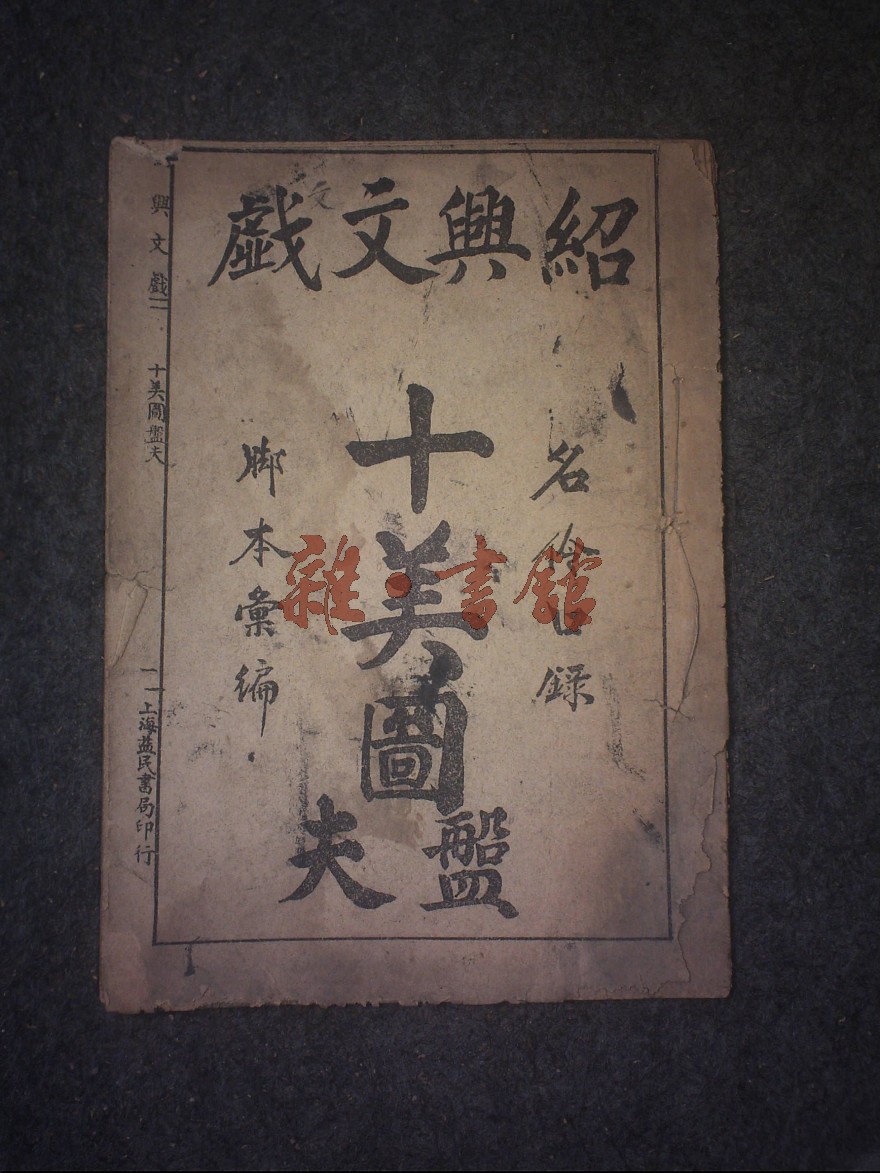 紹興文戲
名伶口錄
十美圖
盤夫
脚本彙編
興文戲
十美圖盤夫
上海益民書局印行
雜·書館